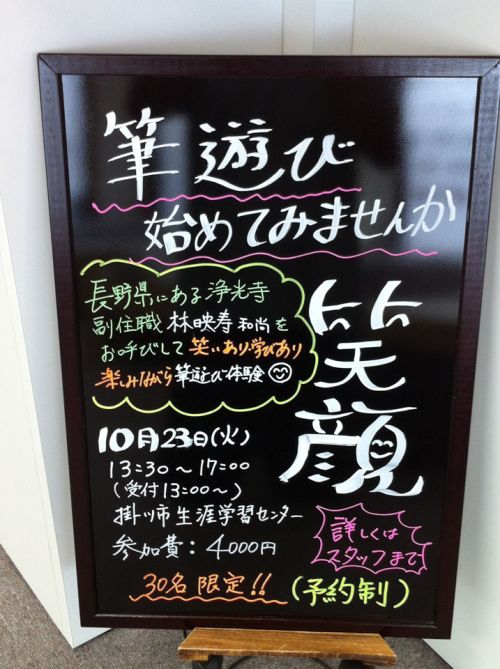 筆遊び
始めてみませんか
長野県にある浄光寺
副住職 林映寿 和尚を
お呼びして 笑いあり・学びあり
楽しみながら 筆遊び体験
笑顔
10月23日(火)
13:30～17:00
(受付13:00～)
掛川市生涯学習センター
参加費：4000円
30名限定!!
(予約制)
詳しくは
スタッフまで